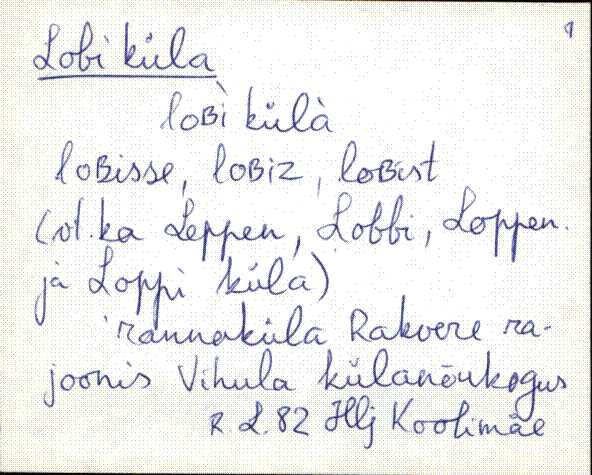 9
Lobi küla
loʙì külà
loʙisse, loʙiz, loʙist
(vt. ka Leppen, Lobbi, Loppen.
ja Loppi küla)
rannaküla Rakvere ra-
joonis Vihula külanõukogus
R. L. 82 Hlj Koolimäe